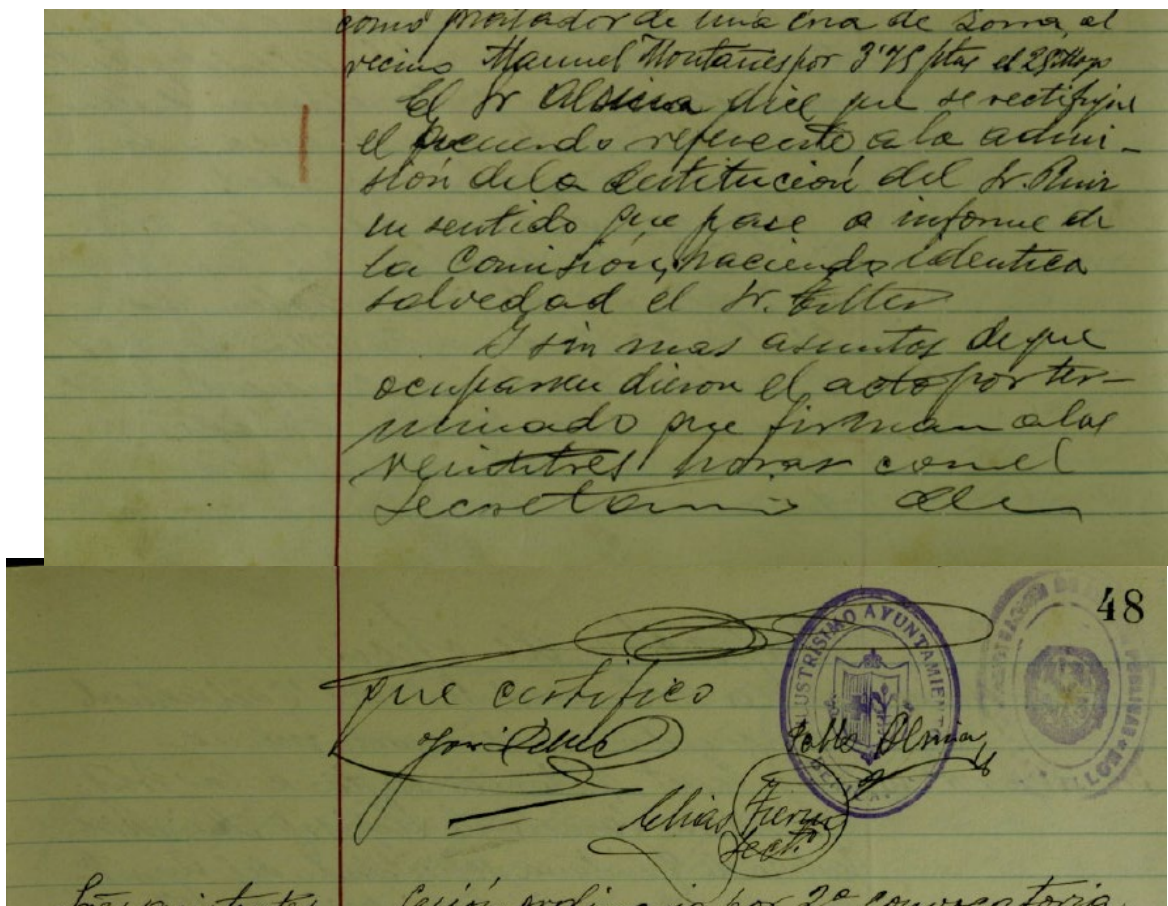 como matador de una cria de zorra, al
vecino Manuel Montañes por 3'75 ptas el 25 Mayo
El Sr Alsina dice que se rectifique
el acuerdo referente a la admi-
sión de la destitución del Sr. Ruiz
en sentido que pase a informe de
la Comisión, haciendo identica
salvedad el Sr.
Y sin mas asuntos de que
ocuparse dieron el acto por ter-
minado que firman a las
veintitres horas con el
Secretario de
48
que certifico
ILUSTRÍSIMO AYUNTAMIENTO
José
Pablo Alsina
Elias
Sectº
Sesión ordinaria por 2ª convocatoria